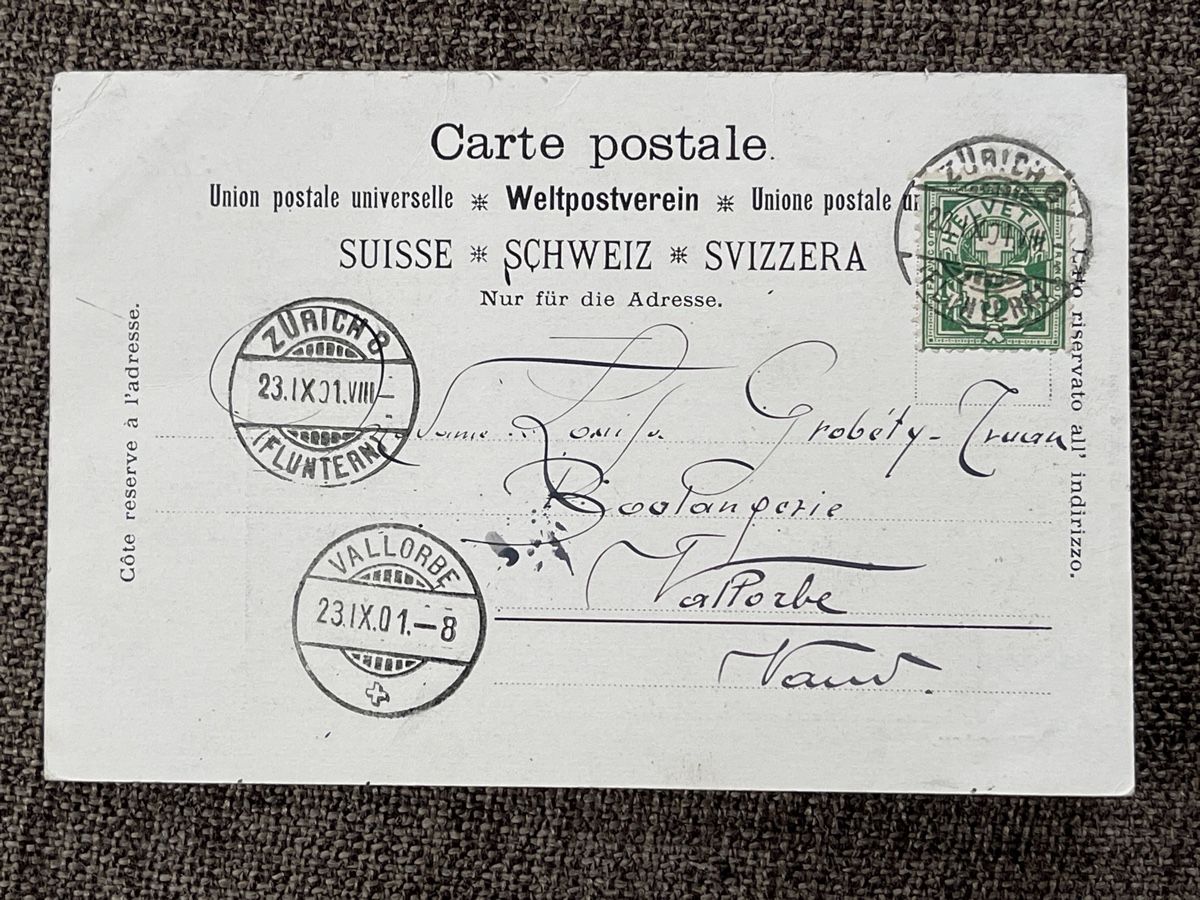 Carte postale.
Union postale universelle * Weltpostverein * Unione postale un
SUISSE * SCHWEIZ * SVIZZERA
Nur für die Adresse.
Côte reserve à l'adresse.
Lato riservato all' indirizzo.
ZÜRICH 8
HELVETIA
5
ZÜRICH 8
23.IX.01.VIII–
(FLUNTERN)
Madame Louise Grobéty-Truan
Boulangerie
Vallorbe
Vaud.
VALLORBE
23.IX.01.–8